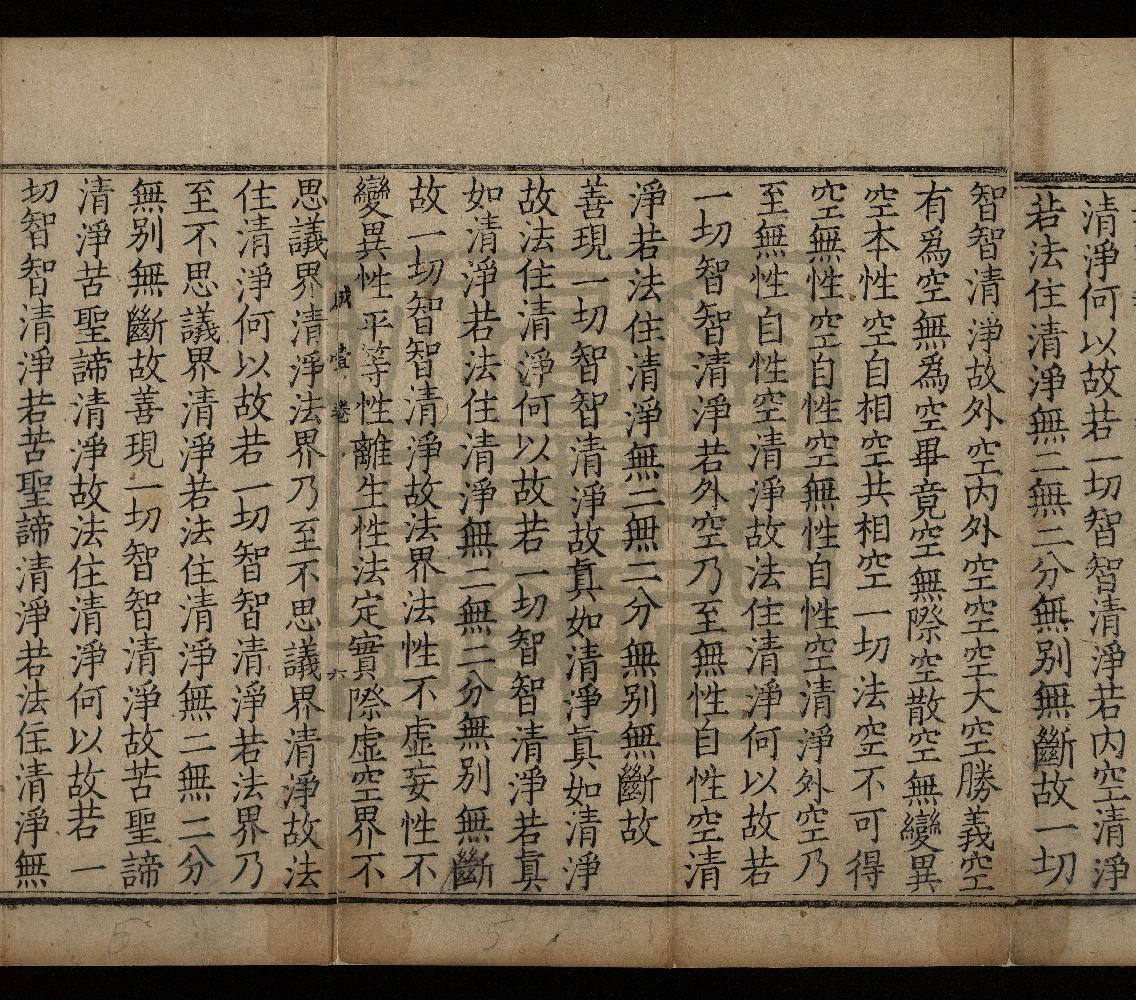 清淨何以故若一切智智清淨若内空清淨
若法住清淨無二無二分無别無斷故一切
智智清淨故外空内外空空空大空勝義空
有爲空無爲空畢竟空無際空散空無變異
空本性空自相空共相空一切法空不可得
空無性空自性空無性自性空清淨外空乃
至無性自性空清淨故法住清淨何以故若
一切智智清淨若外空乃至無性自性空清
淨若法住清淨無二無二分無别無斷故
善現一切智智清淨故真如清淨真如清淨
故法住清淨何以故若一切智智清淨若真
如清淨若法住清淨無二無二分無别無斷
故一切智智清淨故法界法性不虛妄性不
變異性平等性離生性法定實際虛空界不
壹卷 六
思議界清淨法界乃至不思議界清淨故法
住清淨何以故若一切智智清淨若法界乃
至不思議界清淨若法住清淨無二無二分
無别無斷故善現一切智智清淨故苦聖諦
清淨苦聖諦清淨故法住清淨何以故若一
切智智清淨若苦聖諦清淨若法住清淨無